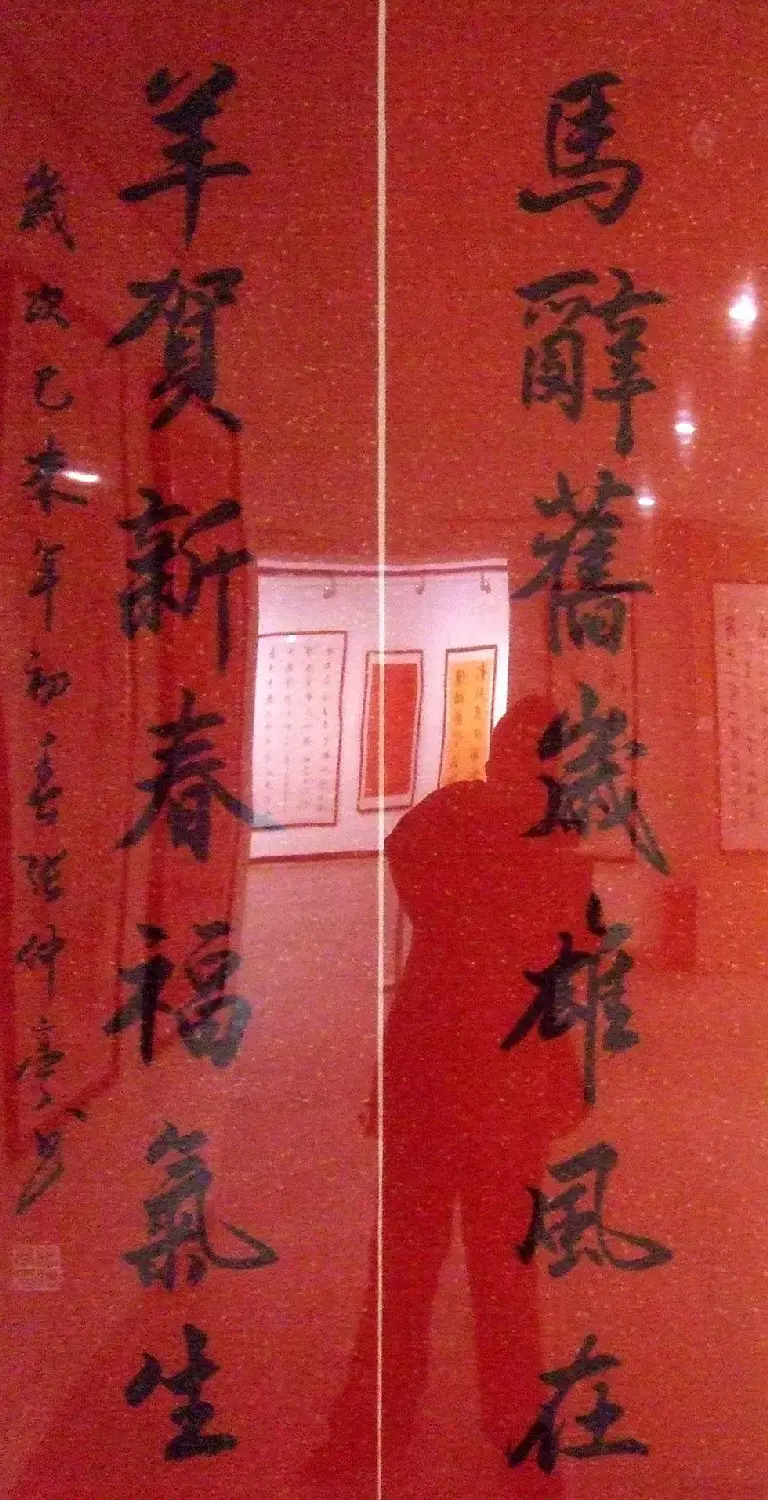 馬辭舊歲雄風在
羊賀新春福氣生
歲次己未年初春張仲亭书